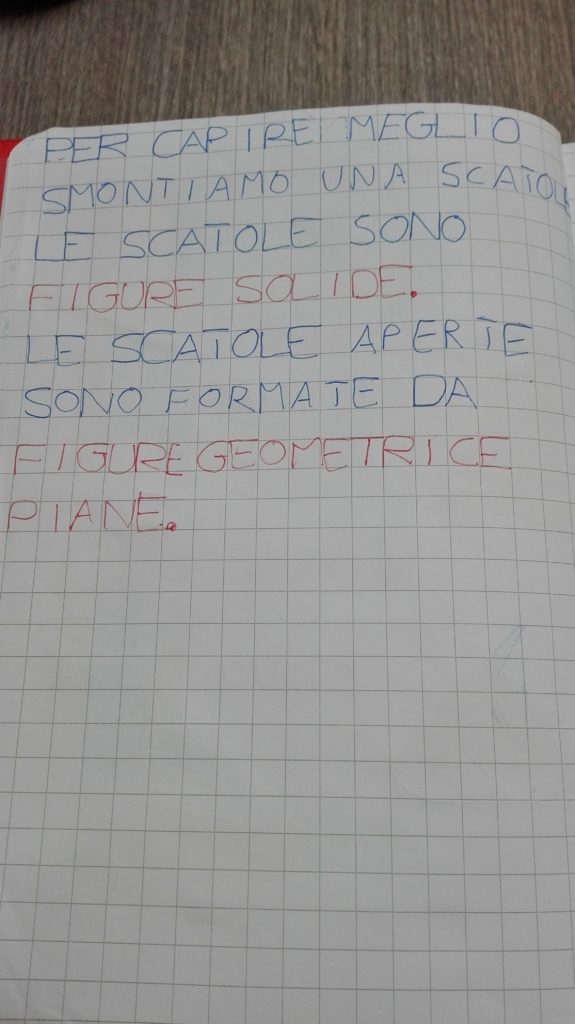 PER CAPIRE MEGLIO
SMONTIAMO UNA SCATOLA
LE SCATOLE SONO
FIGURE SOLIDE.
LE SCATOLE APERTE
SONO FORMATE DA
FIGURE GEOMETRICE
PIANE.